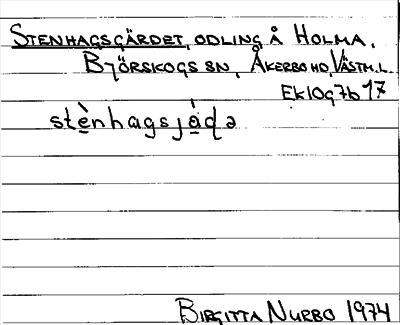 STENHAGSGÄRDET, ODLING Å HOLMA,
BJÖRSKOGS SN, ÅKERBO HD, VÄSTM.L.
EK 10g7b 17
stè̱nhagsjà̱ɖə
BIRGITTA NURBO 1974